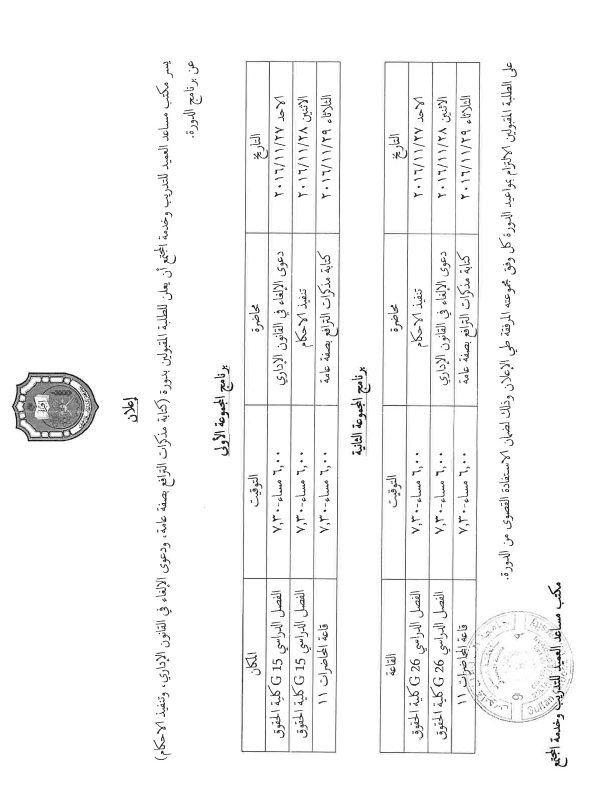 إعلان
يسر مكتب مساعد العميد للتدريب وخدمة المجتمع أن يعلن للطلبة المقبولين بدورة (كتابة مذكرات الترافع بصفة عامة، ودعوى الإلغاء في القانون الإداري، وتنفيذ الاحكام)
عن برنامج الدورة.
برنامج المجموعة الأولى
التاريخ محاضرة التوقيت المكان
الاحد ٢٠١٦/١١/٢٧ دعوى الإلغاء في القانون الإداري ٦,٠٠ مساء-٧,٣٠ الفصل الدراسي G 15 كلية الحقوق
الاثنين ٢٠١٦/١١/٢٨ تنفيذ الاحكام ٦,٠٠ مساء-٧,٣٠ الفصل الدراسي G 15 كلية الحقوق
الثلاثاء ٢٠١٦/١١/٢٩ كتابة مذكرات الترافع بصفة عامة ٦,٠٠ مساء-٧,٣٠ قاعة المحاضرات ١١
برنامج المجموعة الثانية
التاريخ محاضرة التوقيت القاعة
الاحد ٢٠١٦/١١/٢٧ تنفيذ الاحكام ٦,٠٠ مساء-٧,٣٠ الفصل الدراسي G 26 كلية الحقوق
الاثنين ٢٠١٦/١١/٢٨ دعوى الإلغاء في القانون الإداري ٦,٠٠ مساء-٧,٣٠ الفصل الدراسي G 26 كلية الحقوق
الثلاثاء ٢٠١٦/١١/٢٩ كتابة مذكرات الترافع بصفة عامة ٦,٠٠ مساء-٧,٣٠ قاعة المحاضرات ١١
على الطلبة المقبولين الالتزام بمواعيد الدورة كل وفق مجموعته المرفقة طي الإعلان وذلك لضمان الاستفادة القصوى من الدورة.
مكتب مساعد العميد للتدريب وخدمة المجتمع